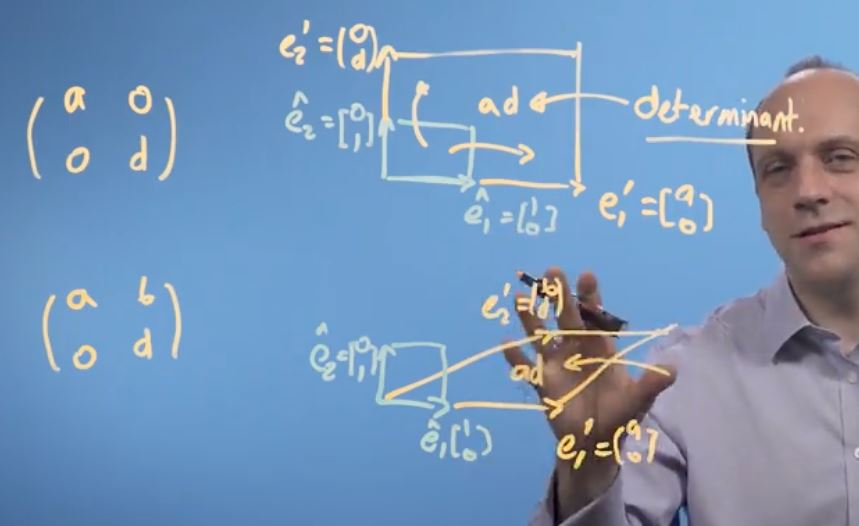 (a 0
0 d)
e₂' = (0
d)
ê₂ = [0
1]
ad
determinant.
ê₁ = [1
0]
e₁' = [a
0]
(a b
0 d)
e₂' = (b
d)
ê₂ = [0
1]
ad
ê₁ [1
0)
e₁' = [a
0]